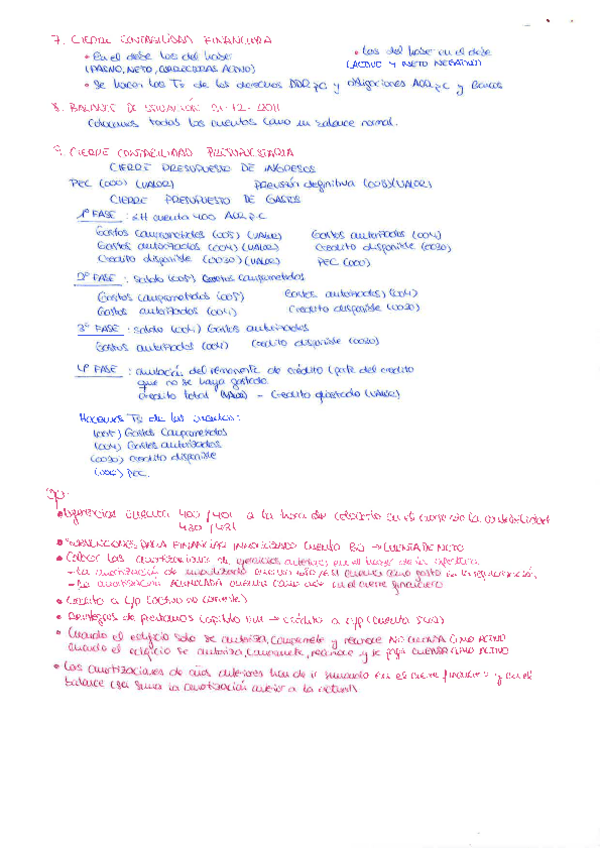 7. CIERRE CONTABILIDAD FINANCIERA
• En el debe los del haber • Los del haber en el debe
(PASIVO, NETO, CORRECTORAS ACTIVO) (ACTIVO Y NETO NEGATIVO)
• Se hacen las Ts de los derechos DDR, PC y obligaciones AOR, PC y Bancos
8. BALANCE DE SITUACIÓN 31-12-2011
Colocamos todas las cuentas como un balance normal.
9. CIERRE CONTABILIDAD PRESUPUESTARIA
CIERRE PRESUPUESTO DE INGRESOS
PEC (000) (VALOR) Previsión definitiva (008) (VALOR)
CIERRE PRESUPUESTO DE GASTOS
1ª FASE: cuenta 400 AOR, PC
Gastos comprometidos (005) (VALOR) Gastos autorizados (004)
Gastos autorizados (004) (VALOR) Credito disponible (0030)
Credito disponible (0030) (VALOR) PEC (000)
2ª FASE: saldo (005) Gastos comprometidos
Gastos comprometidos (005) Gastos autorizados (004)
Gastos autorizados (004) Credito disponible (0030)
3ª FASE: saldo (004) Gastos autorizados
Gastos autorizados (004) Credito disponible (0030)
4ª FASE: anulación del remanente de crédito (parte del credito
que no se haya gastado
Credito total (VALOR) - Credito gastado (VALOR)
Hacemos Ts de las cuentas:
(005) Gastos Comprometidos
(004) Gastos autorizados
(0030) credito disponible
(000) PEC.
• Diferencias cuenta 400/401 a la hora de colocarlo en el cierre de la contabilidad
430/431
• SUBVENCIONES PARA FINANCIAR INMOVILIZADO CUENTA 130 → CUENTA DE NETO
• Colocar las amortizaciones de ejercicios anteriores en el haber de la apertura.
- La amortización de inmovilizado como gasto en la regularización.
- La amortización ACUMULADA en el cierre financiero
• Credito a c/p (activo no corriente)
• Reintegros de prestamos capitulo VIII → crédito a c/p (cuenta 542)
• Cuando el edificio solo se autoriza, compromete y reconoce NO CUENTA COMO ACTIVO
Cuando el edificio se autoriza, compromete, reconoce y se paga CUENTA COMO ACTIVO
• Las amortizaciones de años anteriores han de ir sumando en el cierre financiero y en el
balance (se suma la amortización anterior a la actual)